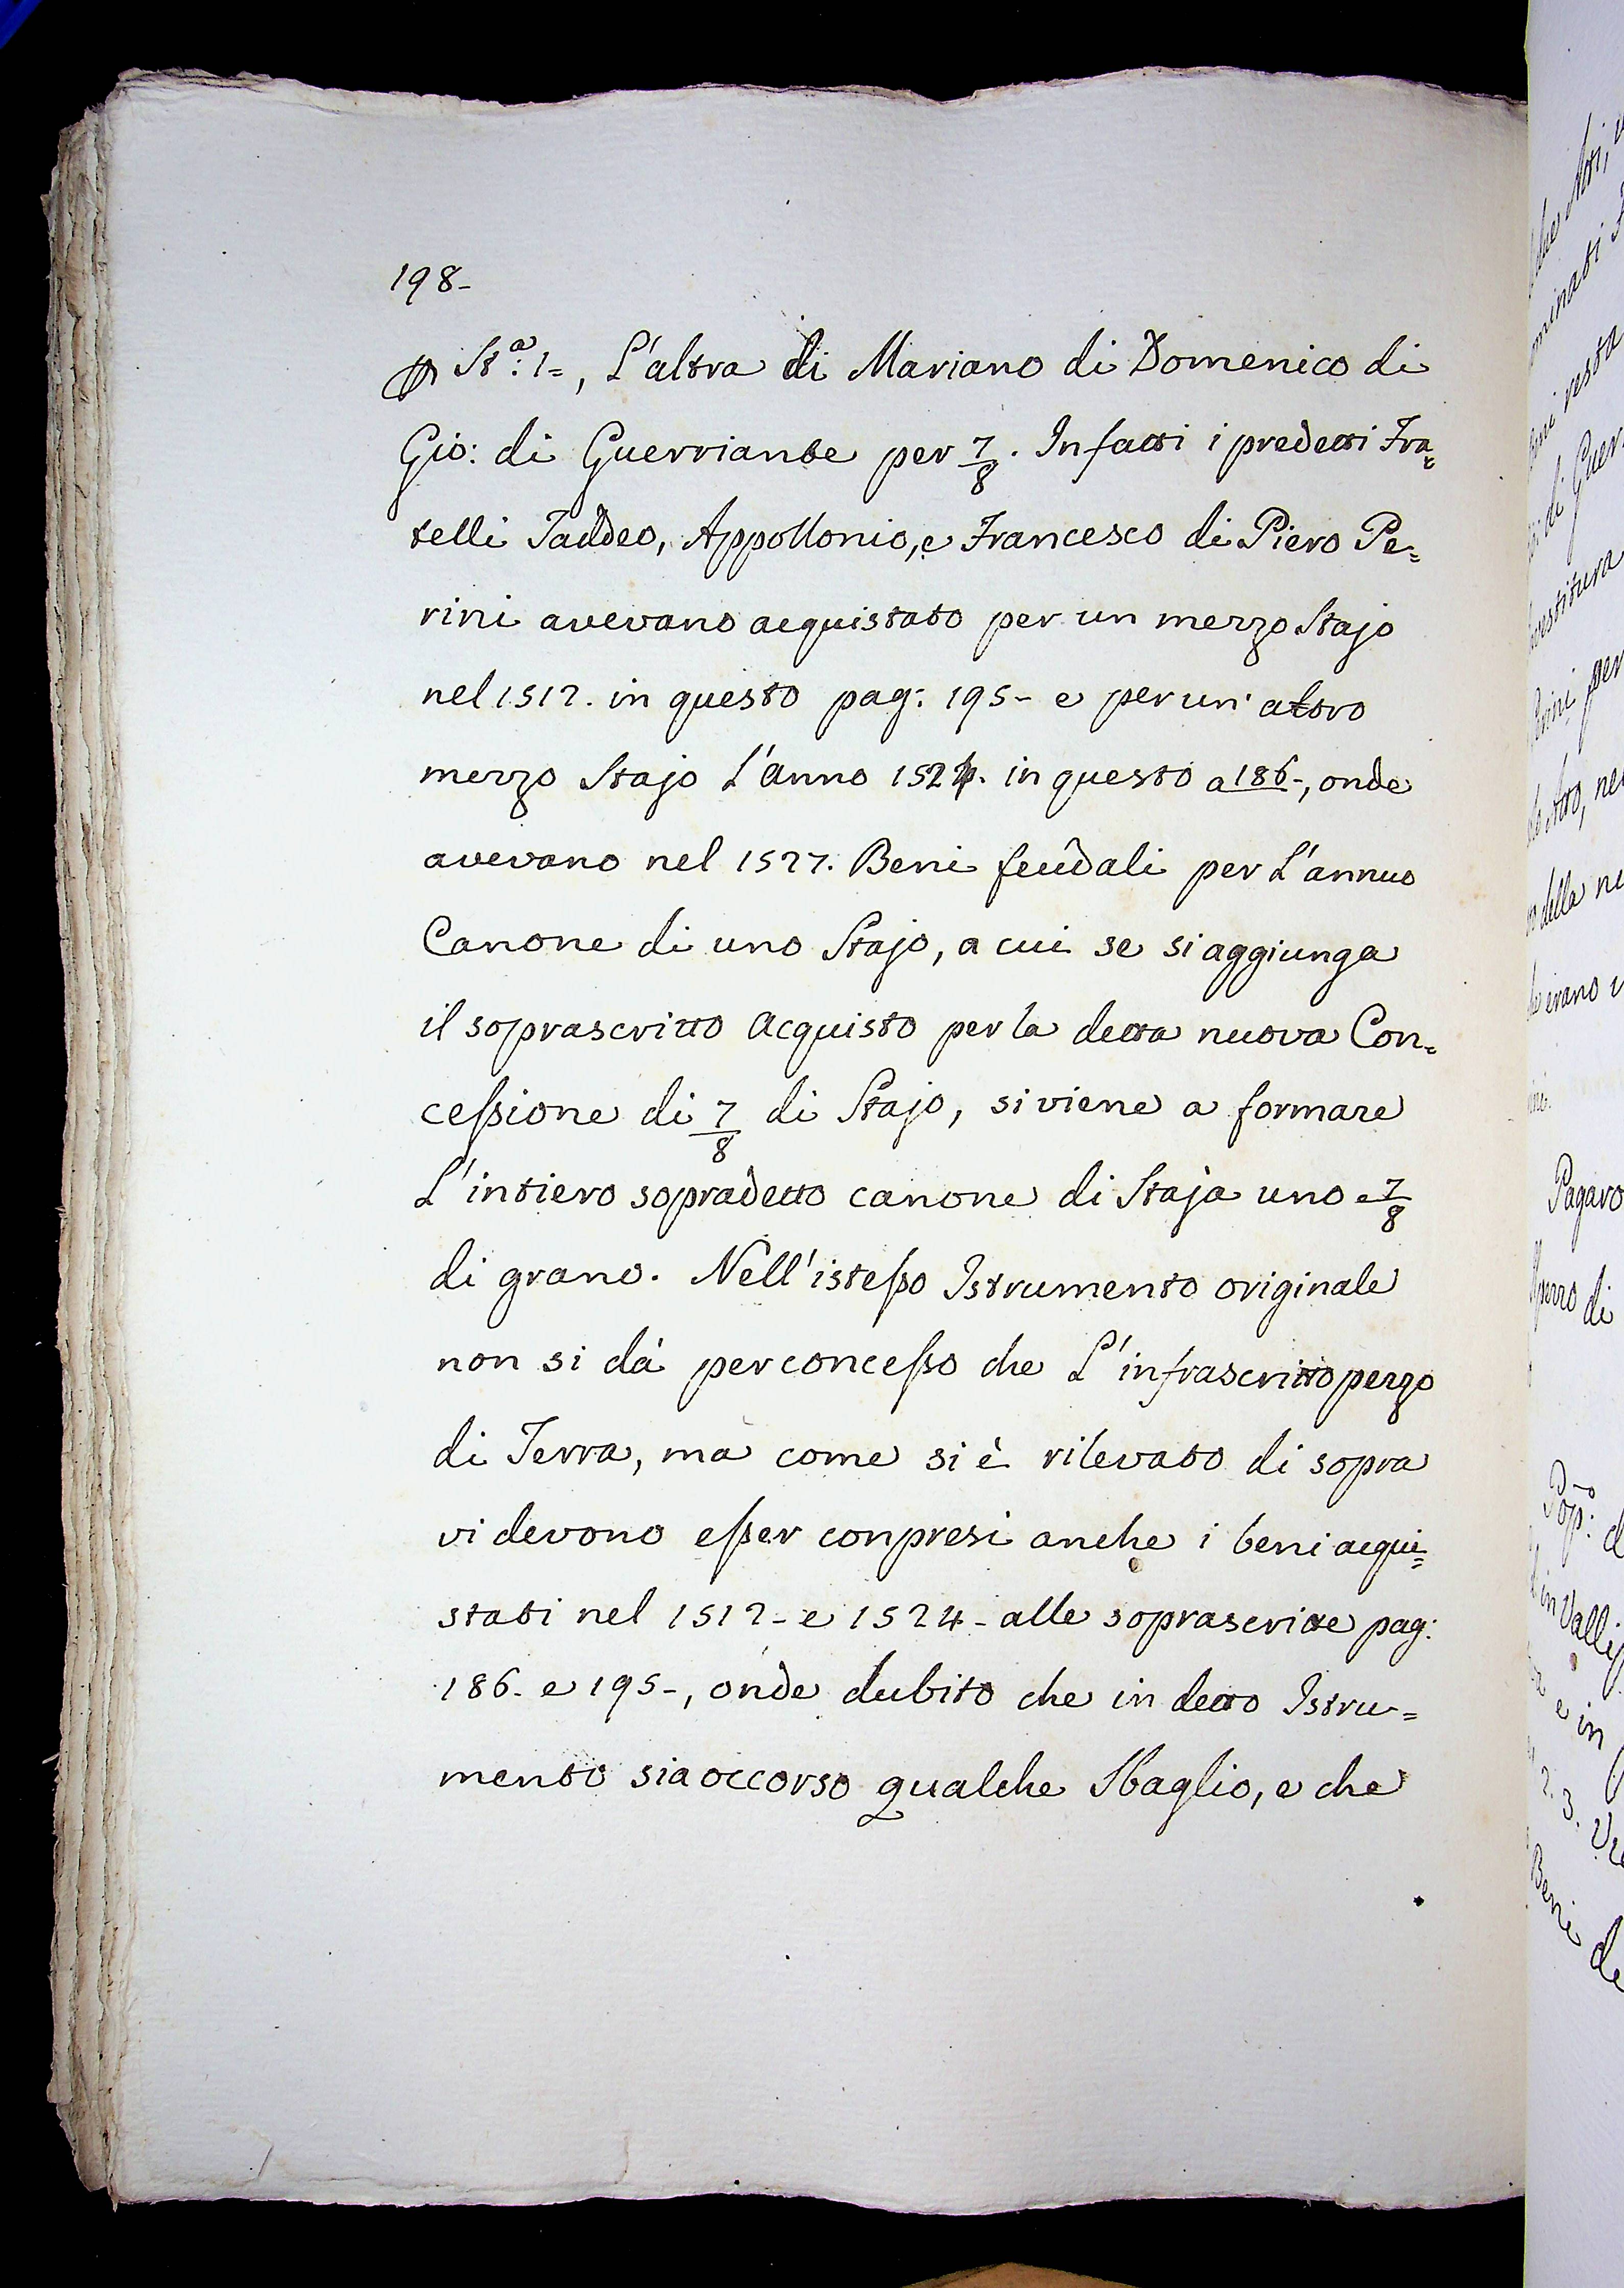 198-
p St.ª 1=, L'altra di Mariano di Domenico di
Gio: di Guerriante per 7/8. Infatti i predetti Fra=
telli Taddeo, Appollonio, e Francesco di Piero Pe=
rini avevano acquistato per un mezzo Stajo
nel 1512. in questo pag: 195- e per un' altro
mezzo Stajo L'anno 1524. in questo a 186-, onde
avevano nel 1527. Beni feudali per L'annuo
Canone di uno Stajo, a cui se si aggiunga
il soprascritto acquisto per la detta nuova Con=
cessione di 7/8 di Stajo, si viene a formare
L'intiero sopradetto canone di Staja uno e 7/8
di grano. Nell'istesso Istrumento originale
non si dà per concesso che L'infrascritto pezzo
di Terra, ma come si è rilevato di sopra
vi devono esser conpresi anche i beni acqui=
stati nel 1512- e 1524- alle soprascritte pag:
186- e 195-, onde dubito che in detto Istru=
mento sia occorso qualche Sbaglio, e che